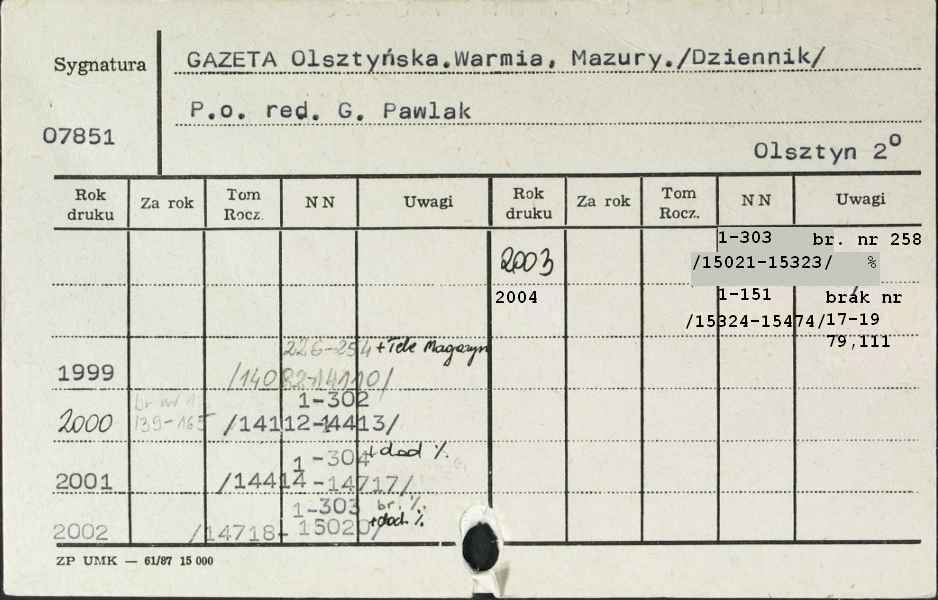 Sygnatura
GAZETA Olsztyńska.Warmia, Mazury./Dziennik/
P.o. red. G. Pawlak
07851
Olsztyn 2º
Rok druku Za rok Tom Rocz. NN Uwagi Rok druku Za rok Tom Rocz. NN Uwagi
226-254 +Tele Magazyn
1999 /14082-14110/
1-302
2000 139-165 /14112-14413/
1-304 +dod %
2001 /14414-14717/
1-303 br. %
2002 /14718-15020/ +dod. %
2003 1-303 br. nr 258
/15021-15323/ %
2004 1-151 brak nr
/15324-15474/ 17-19
79,111
ZP UMK — 61/87 15 000